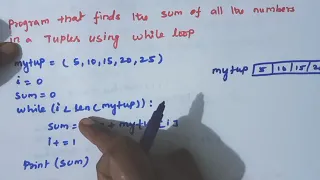 Program that finds the sum of all the numbers
in a Tuples using while loop
mytup = (5,10,15,20,25)
mytup 5 10 15 20
i = 0
sum = 0
while (i < len(mytup)):
sum = + mytup[i]
i += 1
Print (sum)